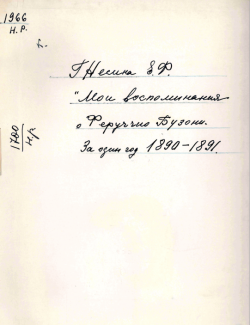 1966
Н.Р.
Гнесина Е.Ф.
"Мои воспоминания
о Феруччио Бузони.
За один год 1890-1891.
1700
н/р